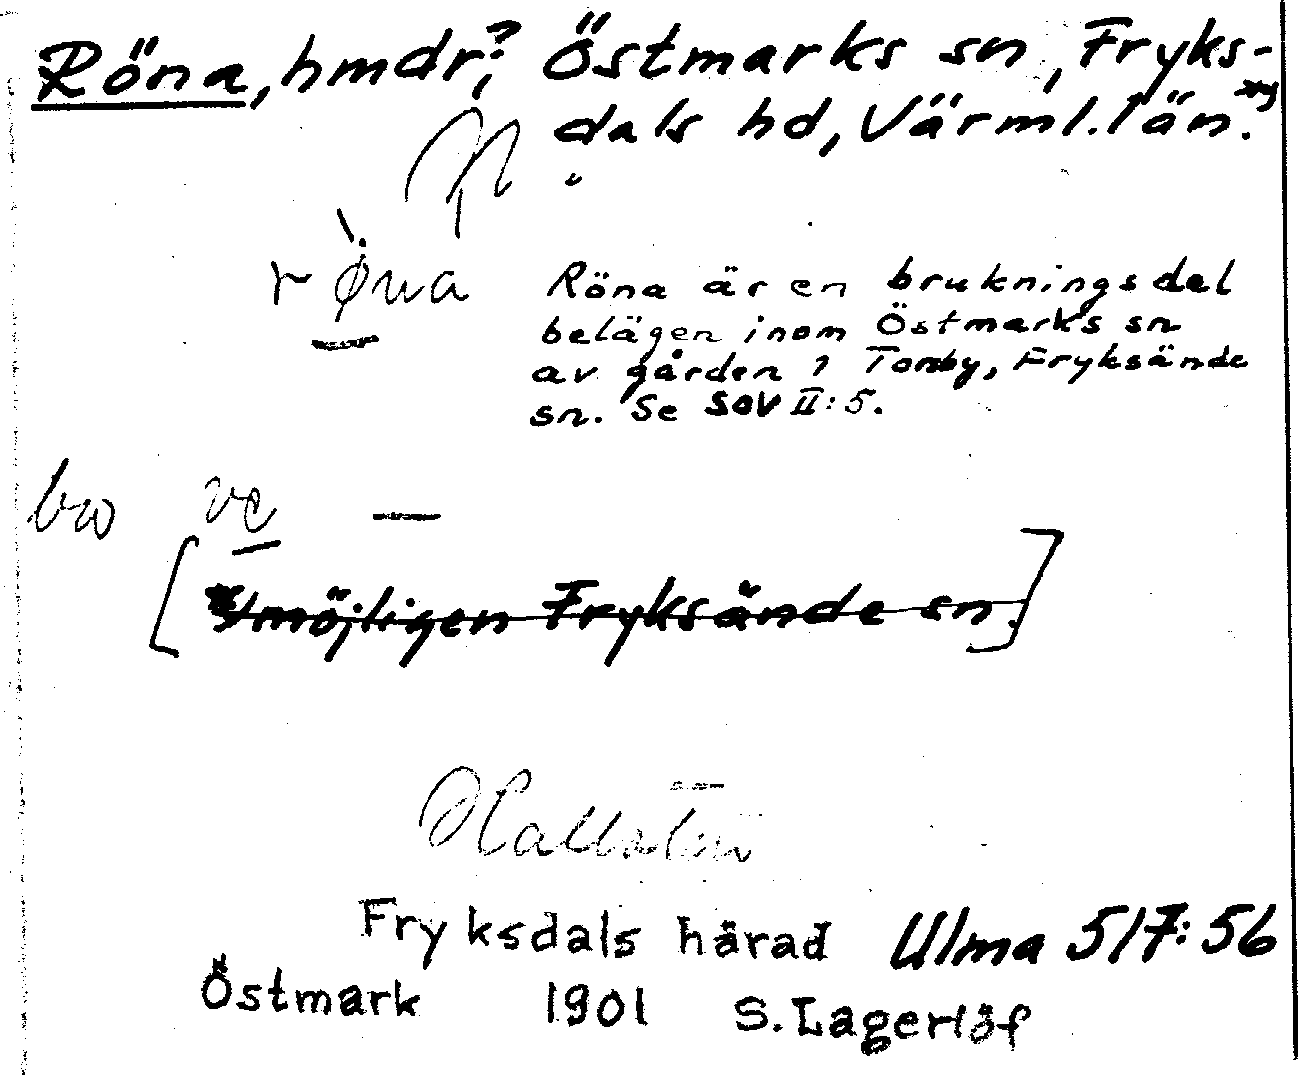 Röna, hmdr?, Östmarks sn, Fryks-
dals hd, Värml. län.
røna
Röna är en brukningsdel
belägen inom Östmarks sn
av gården 1 Tomby, Fryksände
sn. Se SOV II: 5.
bro
[möjligen Fryksände sn.]
Hallsten
Fryksdals härad Ulma 517:56
Östmark 1901 S. Lagerlöf